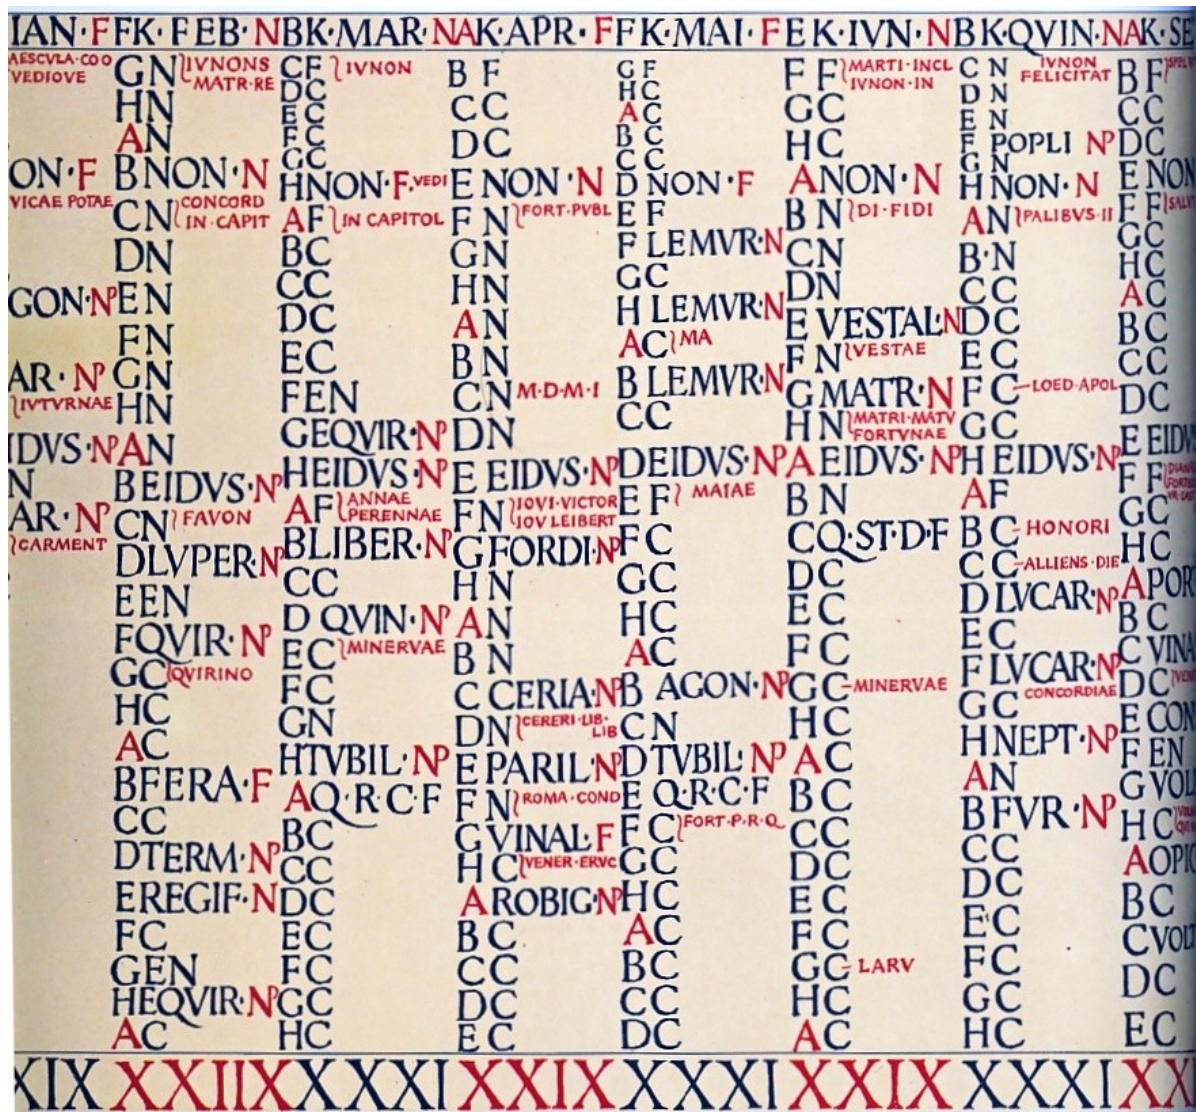 IAN·F FK·FEB·N BK·MAR·N AK·APR·F FK·MAI·F EK·IVN·N BK·QVIN·N AK·SE
AESCVLA·COO
VEDIOVE
ON·F
VICAE POTAE
GON·NP
AR·NP
IVTVRNAE
IDVS·NP
N
AR·NP
CARMENT
GN IVNONS
MATR·RE
HN
AN
BNON·N
CN CONCORD
IN·CAPIT
DN
EN
FN
GN
HN
AN
BEIDVS·NP
CN FAVON
DLVPER·NP
EEN
FQVIR·NP
GC QVIRINO
HC
AC
BFERA·F
CC
DTERM·NP
EREGIF·N
FC
GEN
HEQVIR·NP
AC
CF IVNON
DC
EC
FC
GC
HNON·F·VEDI
AF IN CAPITOL
BC
CC
DC
EC
FEN
GEQVIR·NP
HEIDVS·NP
AF ANNAE
PERENNAE
BLIBER·NP
CC
D QVIN·NP
EC MINERVAE
FC
GN
HTVBIL·NP
AQ·R·C·F
BC
CC
DC
EC
FC
GC
HC
B F
CC
DC
E NON·N
F N FORT·PVBL
GN
HN
AN
BN
CN M·D·M·I
DN
E EIDVS·NP
FN IOVI·VICTOR
IOV LEIBERT
GFORDI·NP
HN
AN
BN
C CERIA·NP
DN CERERI·LIB·
LIB
E PARIL·NP
F N ROMA·COND
GVINAL·F
HC VENER·ERVC
AROBIG·NP
BC
CC
DC
EC
GF
HC
AC
BC
CC
D NON·F
EF
F LEMVR·N
GC
H LEMVR·N
AC MA
B LEMVR·N
CC
DEIDVS·NP
EF MAIAE
FC
GC
HC
AC
B AGON·NP
CN
DTVBIL·NP
E Q·R·C·F
FC FORT·P·R·Q
GC
HC
AC
BC
CC
DC
F F MARTI·INCL
IVNON·IN
GC
HC
ANON·N
BN DI·FIDI
CN
DN
E VESTAL·N
FN VESTAE
GMATR·N
HN MATRI·MATV
FORTVNAE
A EIDVS·NP
BN
CQ·ST·D·F
DC
EC
FC
GC MINERVAE
HC
AC
BC
CC
DC
EC
FC
GC LARV
HC
AC
CN IVNON
FELICITAT
DN
EN
F POPLI NP
GN
HNON·N
AN PALIBVS II
B·N
CC
DC
EC
FC LOED·APOL
GC
HEIDVS·NP
AF
BC HONORI
CC ALLIENS·DIE
DLVCAR·NP
EC
FLVCAR·NP
CONCORDIAE
GC
HNEPT·NP
AN
BFVR·NP
CC
DC
EC
FC
GC
HC
BF
CC
DC
E NON
F F
GC
HC
AC
BC
CC
DC
E EIDV
F F
GC
HC
APOR
BC
CVINA
DC
E CON
FEN
GVOL
HC
AOPIC
BC
CVOLT
DC
EC
XIX XXIIX XXXI XXIX XXXI XXIX XXXI XX